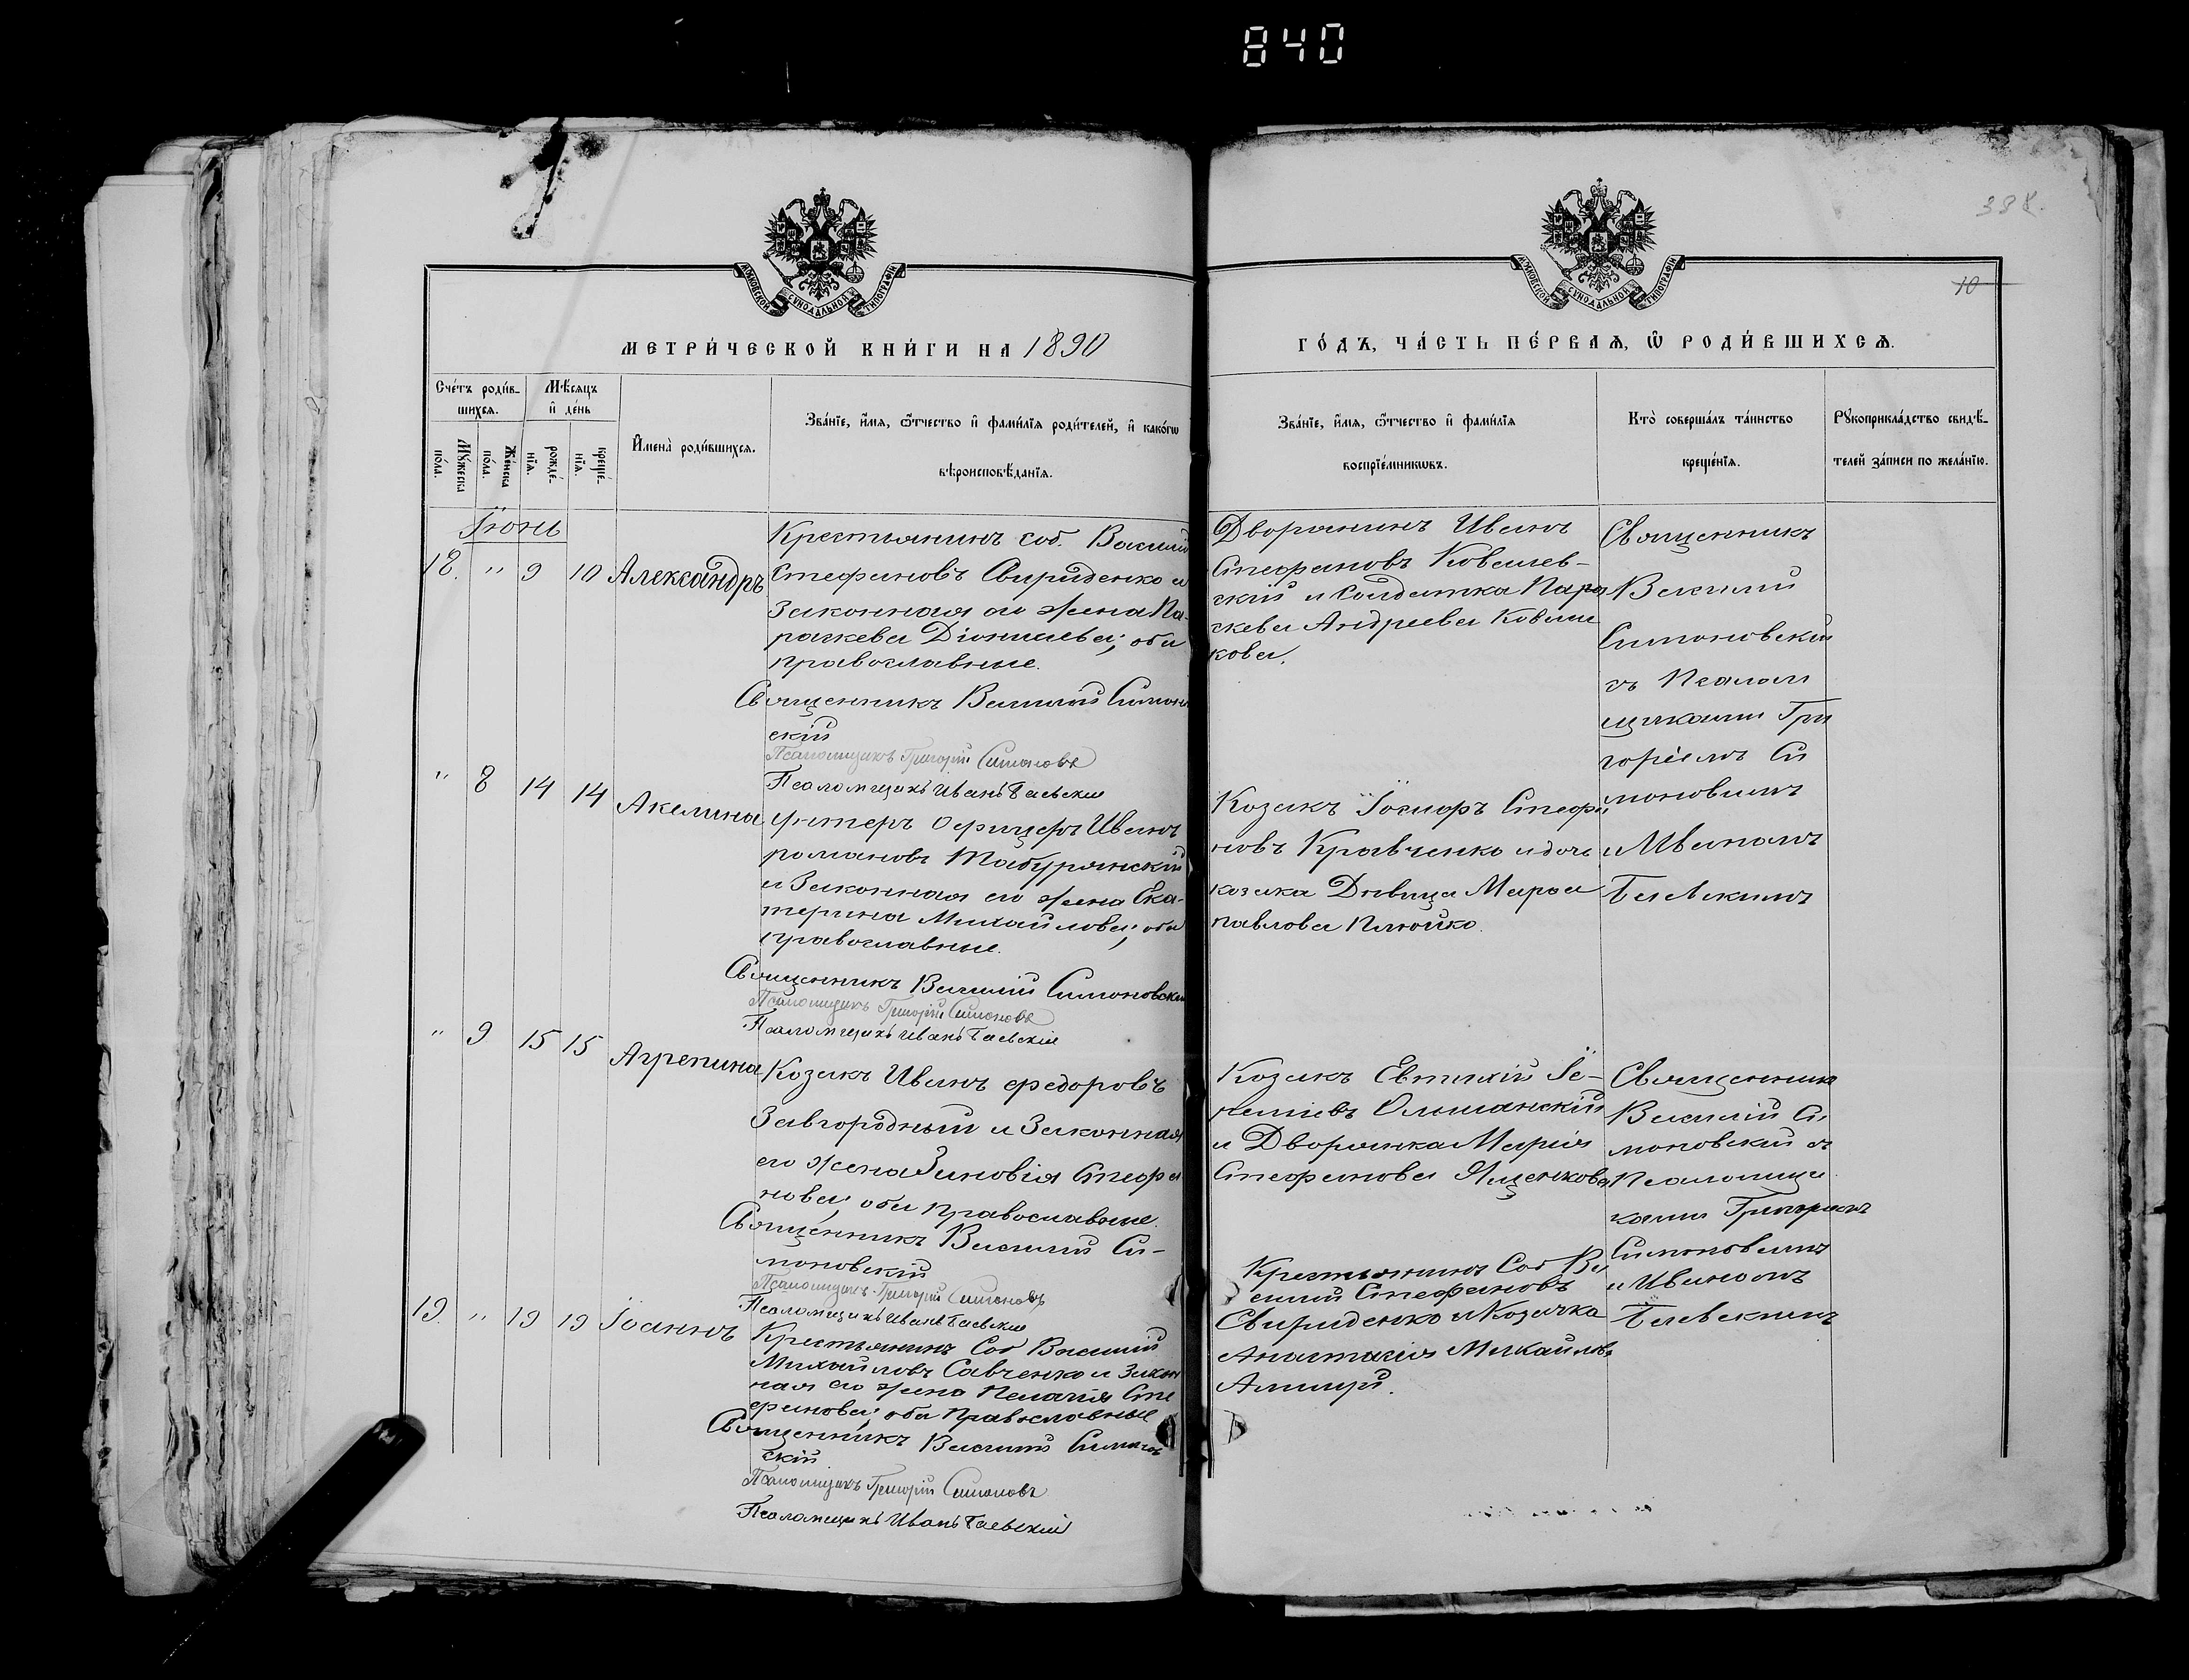 840
388.
10
МОСКОВСКОЙ СѴНОДАЛЬНОЙ ТИПОГРАФІИ
МОСКОВСКОЙ СѴНОДАЛЬНОЙ ТИПОГРАФІИ
МЕТРИ́ЧЕСКОЙ КНИ́ГИ НА 1890
ГО́ДЪ, ЧА́СТЬ ПЕ́РВАѦ, Ѡ҆ РОДИ́ВШИХСѦ.
Сче́тъ роди́в-
шихсѧ.
Мꙋ́жеска по́ла.
Же́нска по́ла.
Мѣ́сѧцъ
и҆ де́нь
рожде́-
нїѧ.
креще́-
нїѧ.
И҆мена̀ роди́вшихсѧ.
Зва́нїе, и҆́мѧ, ѻ҆́тчество и҆ фами́лїѧ роди́телей, и҆ како́гѡ
вѣроисповѣ́данїѧ.
Зва́нїе, и҆́мѧ, ѻ҆́тчество и҆ фами́лїѧ
воспрїе́мникѡвъ.
Кто̀ соверша́лъ та́инство
креще́нїѧ.
Рꙋкоприкла́дство свидѣ́-
телей за́писи по жела́нїю.
Іюнь
18. " 9 10 Александръ
Крестьянинъ соб. Василій
Стефановъ Свириденко и
Законная его жена Па-
раскева Діонисіева; оба
православные.
Священникъ Василій Симонов
скій
Псаломщикъ Григорій Симоновъ
Псаломщикъ Иванъ Баевскій
Дворянинъ Иванъ
Стефановъ Ковалев-
скій и Солдатка Пара
скева Андреева Ковали
кова.
Священникъ
Василий
Симоновскій
съ Псалом
щиками Гри
горіемъ Си
моновымъ
и Иваномъ
Баевскимъ
" 8 14 14 Акелина
Унтеръ Офицеръ Иванъ
романовъ Табурянский
и Законная его жена Ека-
терина Михайлова; оба
православные.
Священникъ Василій Симоновскій
Псаломщикъ Григорій Симоновъ
Псаломщикъ Иванъ Баевскій
Козакъ Іосифъ Стефа
новъ Кравченко и дочь
козака Дѣвица Марѳа
павлова Плюйко.
" 9 15 15 Агрепина
Козакъ Иванъ федоровъ
Завгородный и Законная
его жена Зиновія Стефа
нова; оба православные.
Священникъ Василий Си-
моновскій
Псаломщикъ Григорій Симоновъ
Псаломщикъ Иванъ Баевскій
Козакъ Евтихій Іе-
Ольшанскій
и Дворянка Марія
Стефанова Ященкова
Священникъ
Василій Си
моновскій съ
Псаломщи
ками Григоріемъ
Симоновымъ
и Иваномъ
Баевскимъ
19. " 19 19 Іоаннъ
Крестьянинъ Соб Василий
Михайловъ Савченко и Закон
ная его жена Пелагія Сте
фанова; оба Православные
Священникъ Василий Симонов
скій
Псаломщикъ Григорій Симоновъ
Псаломщикъ Иванъ Баевскій
Крестьянинъ Соб Ва
силий Стефановъ
Свириденко и Козачка
Анастасія Михайлова